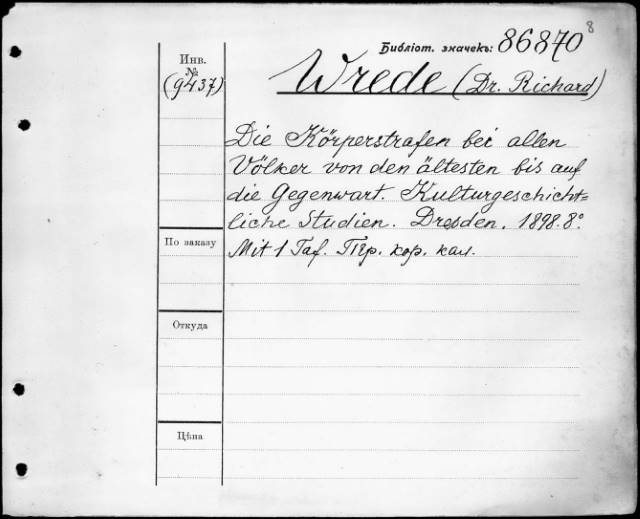 8
Библіот. значекъ: 86870
Инв.
№
(9437)
Wrede (Dr. Richard)
Die Körperstrafen bei allen
Völker von den ältesten bis auf
die Gegenwart. Kulturgeschicht=
liche Studien. Dresden. 1898. 8º
По заказу
Mit 1 Taf. Пер. кор. кал.
Откуда
Цѣна